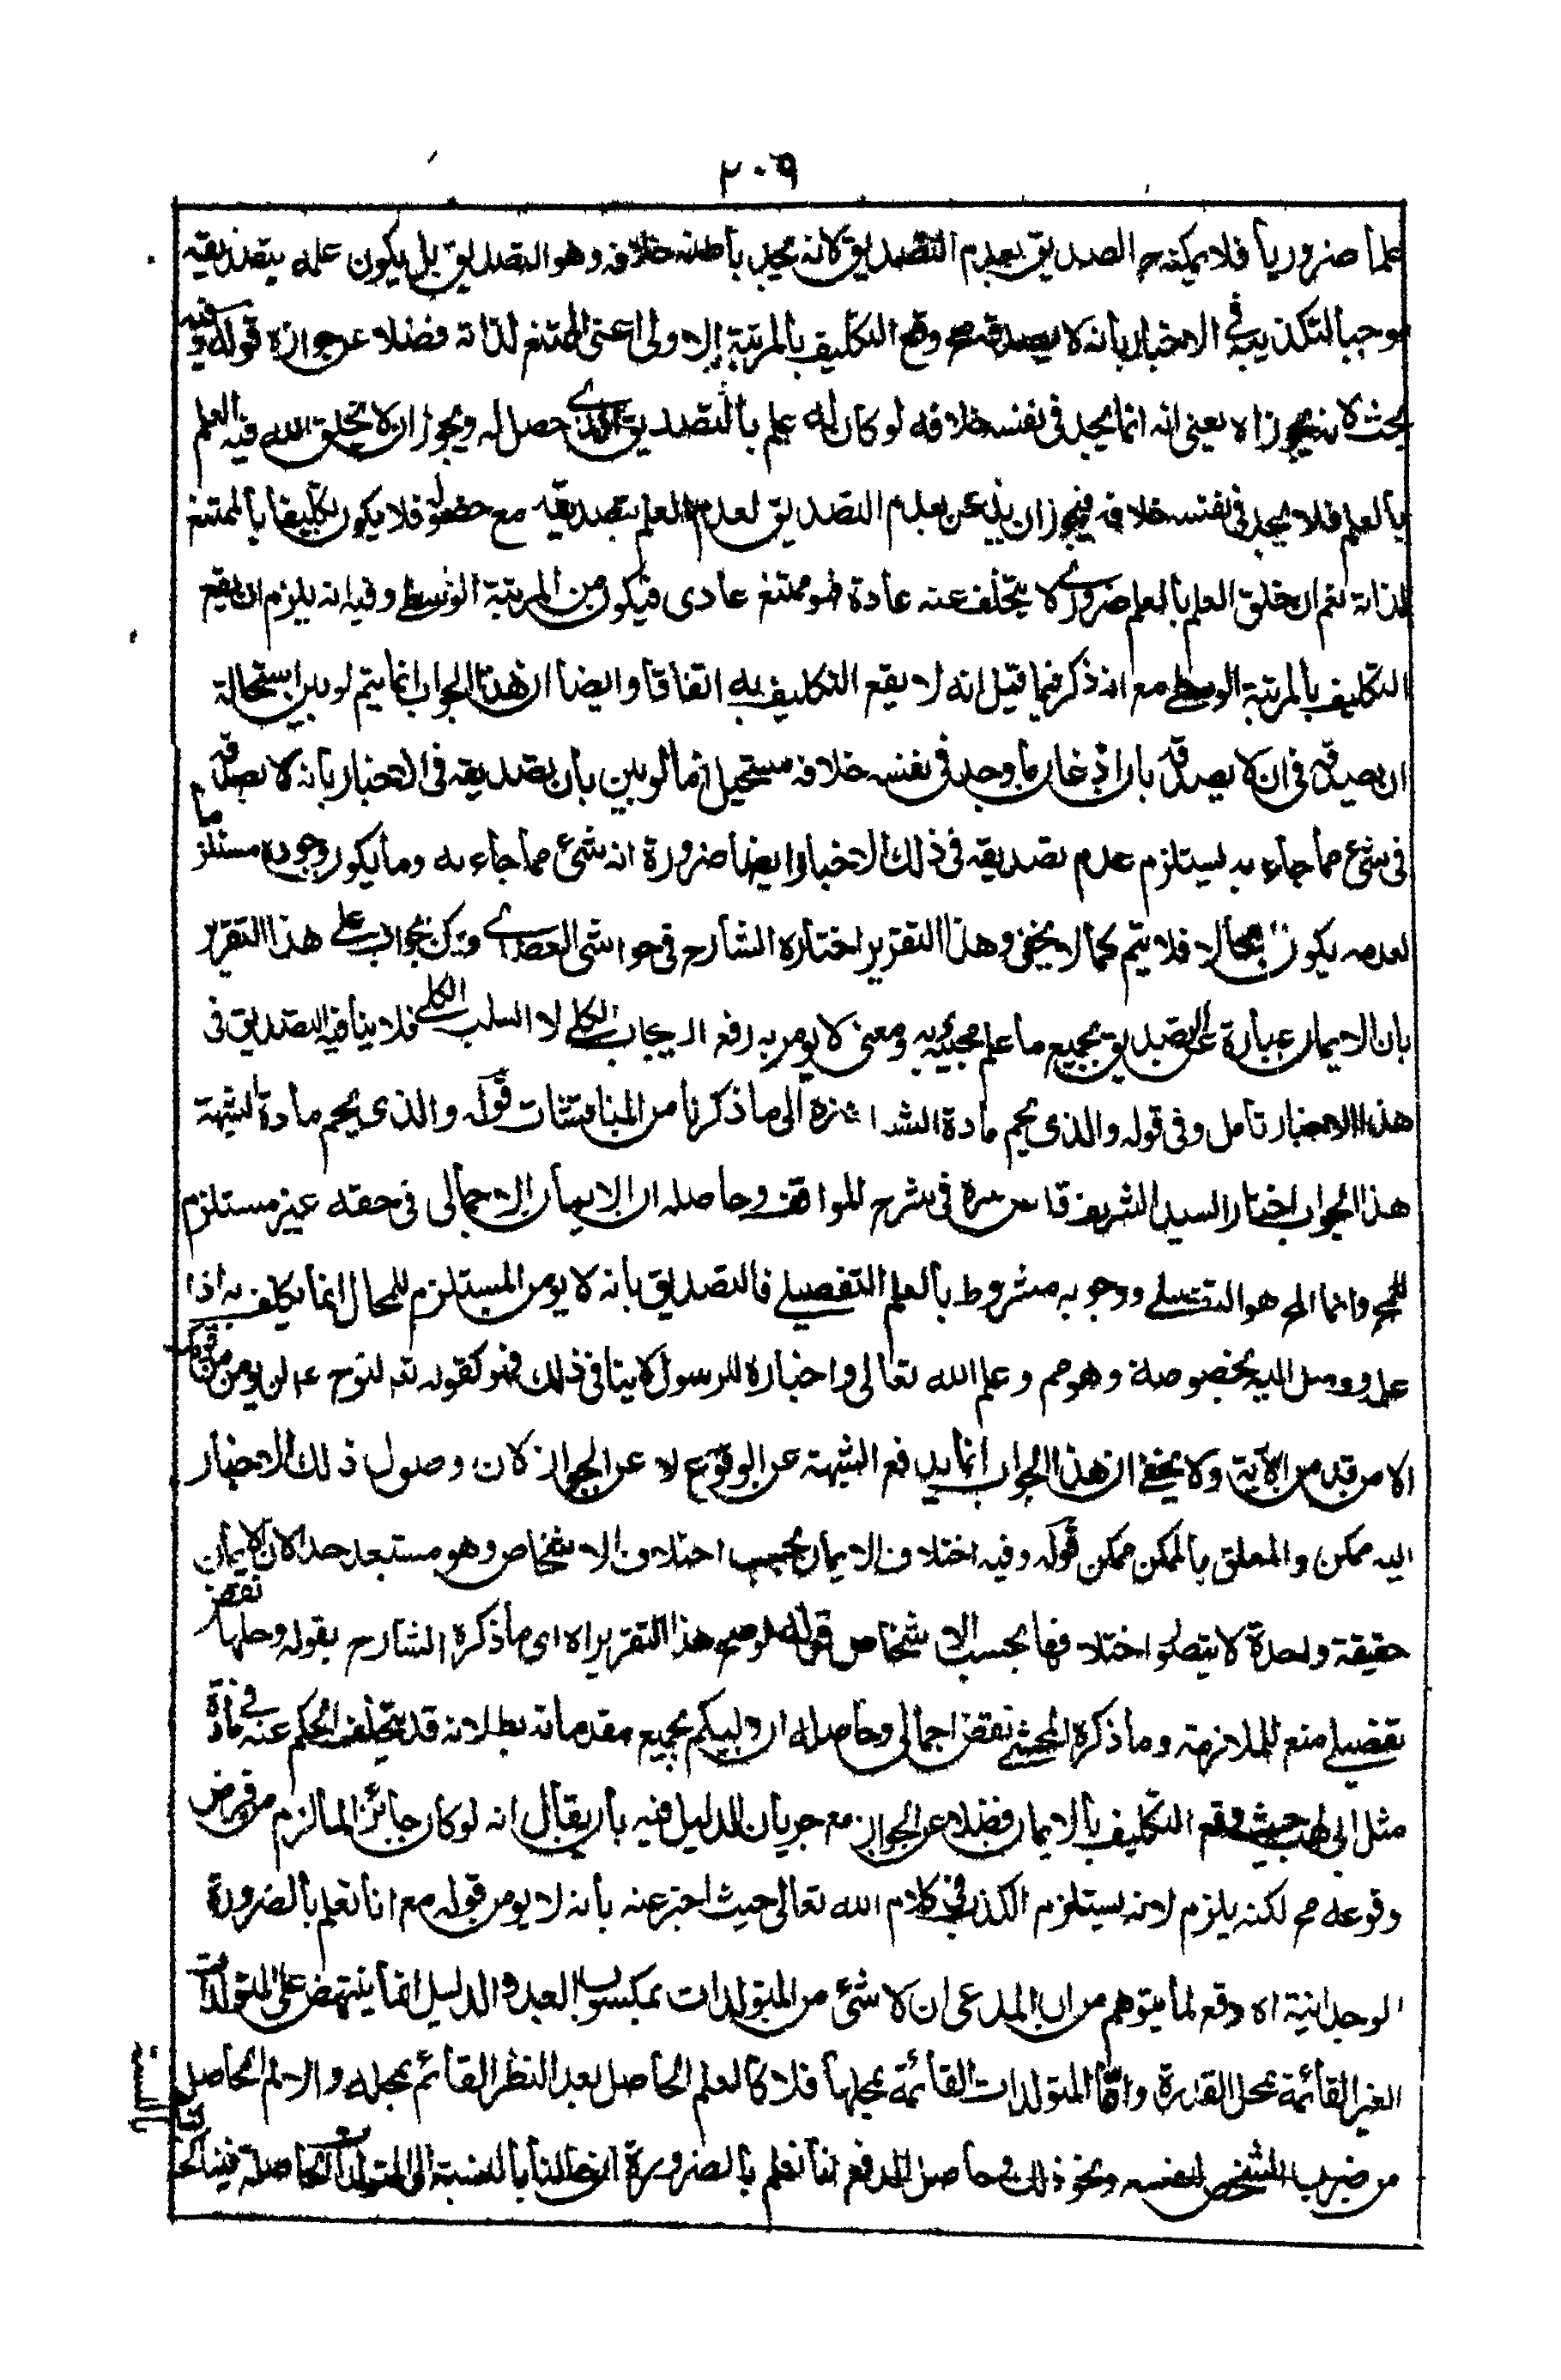 ٢٠٩
علما ضروريا فلا يمكنه ح التصديق بعدم التصديق لانه يجد بأطنه خلافه وهو التصديق بل يكون علمه بتصديقيه
موجبا لتكذيبه في الاخبار بأنه لا يصدقه وقع التكليف بالمرتبة الاولى اعنى الممتنع لذاته فضلا عن جوازه قوله وفيه
بحث لانه يجوز اه يعنى انه انما يجد في نفسه خلافه لو كان له علم بالتصديق الذى حصل له ويجوز ان لا يخلق الله فيه العلم
بالعلم فلا يجد في نفسه خلافه فيجوز ان يذعن بعدم التصديق لعدم العلم بتصديقه مع حصوله فلا يكون تكليفا بالممتنع
لذاته نعم ان خلق العلم بالعلم ضرورى لا يتخلف عنه عادة فهو ممتنع عادى فيكون من المرتبة الوسطى وفيه انه يلزم ان يقع
التكليف بالمرتبة الوسطى مع انه ذكر فيما قبل انه لا يقع التكليف به اتفاقا وايضا ان هذا الجواب انما يتم لو بين استحالة
ان يصدقه في ان لا يصدقه بان اذعان ما وجد في نفسه خلافه مستحيل اما لو بين بان تصديقه في الاخبار بأنه لا يصدقه
في شئ مما جاء به يستلزم عدم تصديقه في ذلك الاخبار ايضا ضرورة انه شئ مما جاء به وما يكون وجوده مستلزما
لعدمه يكون محالا فلا يتم كما لا يخفى وهذا التقرير اختاره الشارح في حواشى العضدى ويمكن الجواب على هذا التقرير
بان الايمان عبارة عن التصديق بجميع ما علم مجيئه به ومعنى لا يومن به رفع الايجاب الكلى لا السلب الكلى فلا ينافيه التصديق في
هذا الاخبار تأمل وفى قوله والذى يحسم مادة الشبهة اشارة الى ما ذكرنا من المناقشات قوله والذى يحسم مادة الشبهة
هذا الجواب اختار السيد الشريف قدس سره في شرح للمواقف وحاصله ان الايمان الاجمالى في حقه غير مستلزم
للمح وانما المح هو التفصيلى ووجوبه مشروط بالعلم التفصيلى فالتصديق بأنه لا يومن المستلزم للمحال انما يكلف به اذا
علم ووصل اليه بخصوصه وهو مم وعلم الله تعالى واخباره للرسول لا ينافى ذلك فهو كقوله تعالى لنوح عم لن يومن من قومك
الا من قد من الآية ولا يخفى ان هذا الجواب انما يدفع الشبهة عن الوقوع لا عن الجواز لان وصول ذلك الاخبار
اليه ممكن والمعلق بالممكن ممكن قوله وفيه اختلاف الايمان بحسب اختلاف الاشخاص وهو مستبعد جدا لان الايمان
حقيقة واحدة لا يتصور اختلافها بحسب الاشخاص قوله لو صح هذا التقرير اه اى ما ذكره الشارح بقوله وحلها نقض
تفصيلى منع للملازمة وما ذكره المحشى نقض اجمالى وحاصله ان دليلكم بجميع مقدماته بطلانه قد يتخلف الحكم عنه في مادة
مثل ابى لهب حيث وقع التكليف بالايمان فضلا عن الجواز مع جريان الدليل فيه بان يقال انه لو كان جائزا لما لزم من فرض
وقوعه مح لكنه يلزم لانه يستلزم الكذب في كلام الله تعالى حيث اخبر عنه بأنه لا يومن قوله مع انا نعلم بالضرورة
الوجدانية اه دفع لما يتوهم من ان المدعى ان لا شئ من المتولدات بمكسوب العبد والدليل انما ينتهض على المتولدات
الغير القائمة بمحل القدرة واما المتولدات القائمة بمحلها فلا كالعلم الحاصل بعد النظر القائم بمحله والالم الحاصل
من ضرب الشخص لنفسه ونحو ذلك وحاصل الدفع انا نعلم بالضرورة ان حالنا بالنسبة الى المتولدات الحاصلة فينا كحا